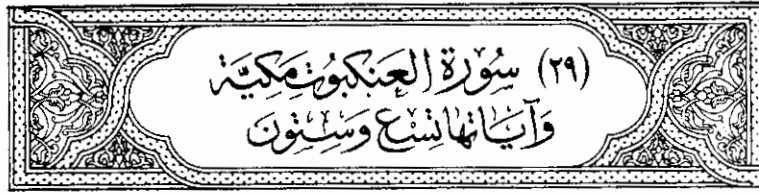 (٢٩) سُورَة العَنكبُوت مَكيَّة
وَآيَاتها تِسْع وَسِتّون